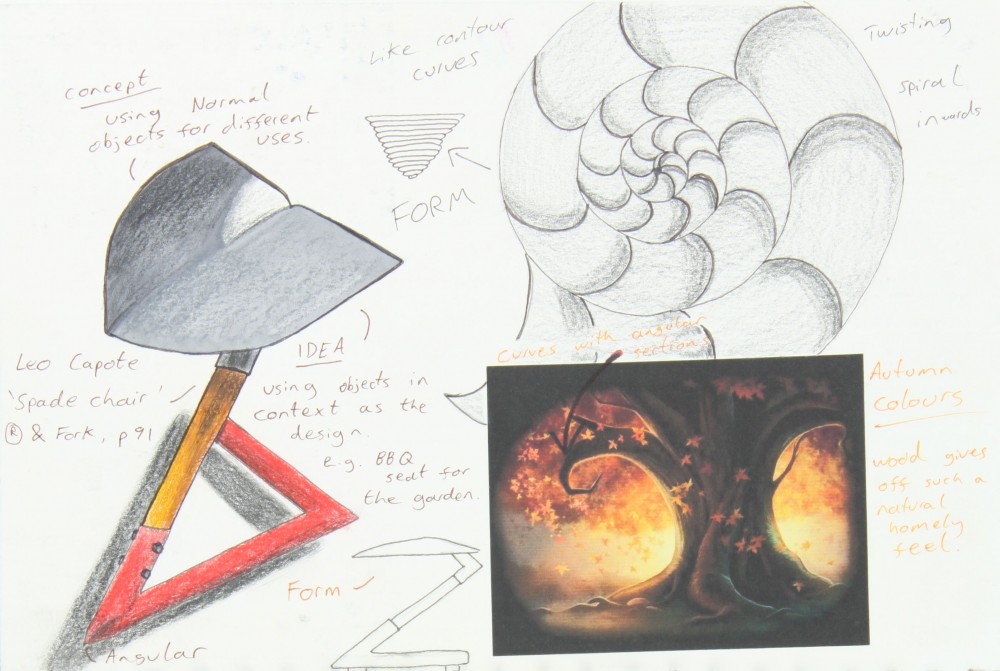 concept
using Normal
objects for different
uses.
Like contour
curves
FORM
Twisting
spiral
inwards
Leo Capote
'Spade chair'
® & Fork, p91
IDEA
using objects in
context as the
design.
e.g. BBQ
seat for
the garden.
Form
Angular
Curves with angular
sections
Autumn
Colours
wood gives
off such a
natural
homely
feel.